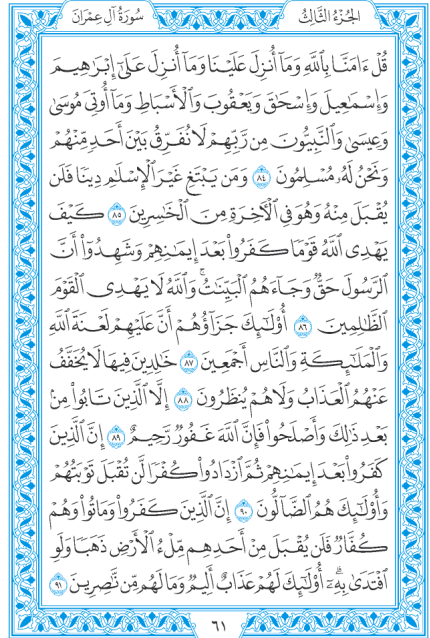 الجُزْءُ الثَّالِثُ
سُورَةُ آلِ عِمْرَانَ
قُلْ ءَامَنَّا بِٱللَّهِ وَمَآ أُنزِلَ عَلَيْنَا وَمَآ أُنزِلَ عَلَىٰٓ إِبْرَٰهِيمَ
وَإِسْمَٰعِيلَ وَإِسْحَٰقَ وَيَعْقُوبَ وَٱلْأَسْبَاطِ وَمَآ أُوتِىَ مُوسَىٰ
وَعِيسَىٰ وَٱلنَّبِيُّونَ مِن رَّبِّهِمْ لَا نُفَرِّقُ بَيْنَ أَحَدٍ مِّنْهُمْ
وَنَحْنُ لَهُۥ مُسْلِمُونَ ٨٤ وَمَن يَبْتَغِ غَيْرَ ٱلْإِسْلَٰمِ دِينًا فَلَن
يُقْبَلَ مِنْهُ وَهُوَ فِى ٱلْءَاخِرَةِ مِنَ ٱلْخَٰسِرِينَ ٨٥ كَيْفَ
يَهْدِى ٱللَّهُ قَوْمًا كَفَرُوا۟ بَعْدَ إِيمَٰنِهِمْ وَشَهِدُوٓا۟ أَنَّ
ٱلرَّسُولَ حَقٌّ وَجَآءَهُمُ ٱلْبَيِّنَٰتُ ۚ وَٱللَّهُ لَا يَهْدِى ٱلْقَوْمَ
ٱلظَّٰلِمِينَ ٨٦ أُو۟لَٰٓئِكَ جَزَآؤُهُمْ أَنَّ عَلَيْهِمْ لَعْنَةَ ٱللَّهِ
وَٱلْمَلَٰٓئِكَةِ وَٱلنَّاسِ أَجْمَعِينَ ٨٧ خَٰلِدِينَ فِيهَا لَا يُخَفَّفُ
عَنْهُمُ ٱلْعَذَابُ وَلَا هُمْ يُنظَرُونَ ٨٨ إِلَّا ٱلَّذِينَ تَابُوا۟ مِنۢ
بَعْدِ ذَٰلِكَ وَأَصْلَحُوا۟ فَإِنَّ ٱللَّهَ غَفُورٌ رَّحِيمٌ ٨٩ إِنَّ ٱلَّذِينَ
كَفَرُوا۟ بَعْدَ إِيمَٰنِهِمْ ثُمَّ ٱزْدَادُوا۟ كُفْرًا لَّن تُقْبَلَ تَوْبَتُهُمْ
وَأُو۟لَٰٓئِكَ هُمُ ٱلضَّآلُّونَ ٩٠ إِنَّ ٱلَّذِينَ كَفَرُوا۟ وَمَاتُوا۟ وَهُمْ
كُفَّارٌ فَلَن يُقْبَلَ مِنْ أَحَدِهِم مِّلْءُ ٱلْأَرْضِ ذَهَبًا وَلَوِ
ٱفْتَدَىٰ بِهِۦٓ ۗ أُو۟لَٰٓئِكَ لَهُمْ عَذَابٌ أَلِيمٌ وَمَا لَهُم مِّن نَّٰصِرِينَ ٩١
٦١